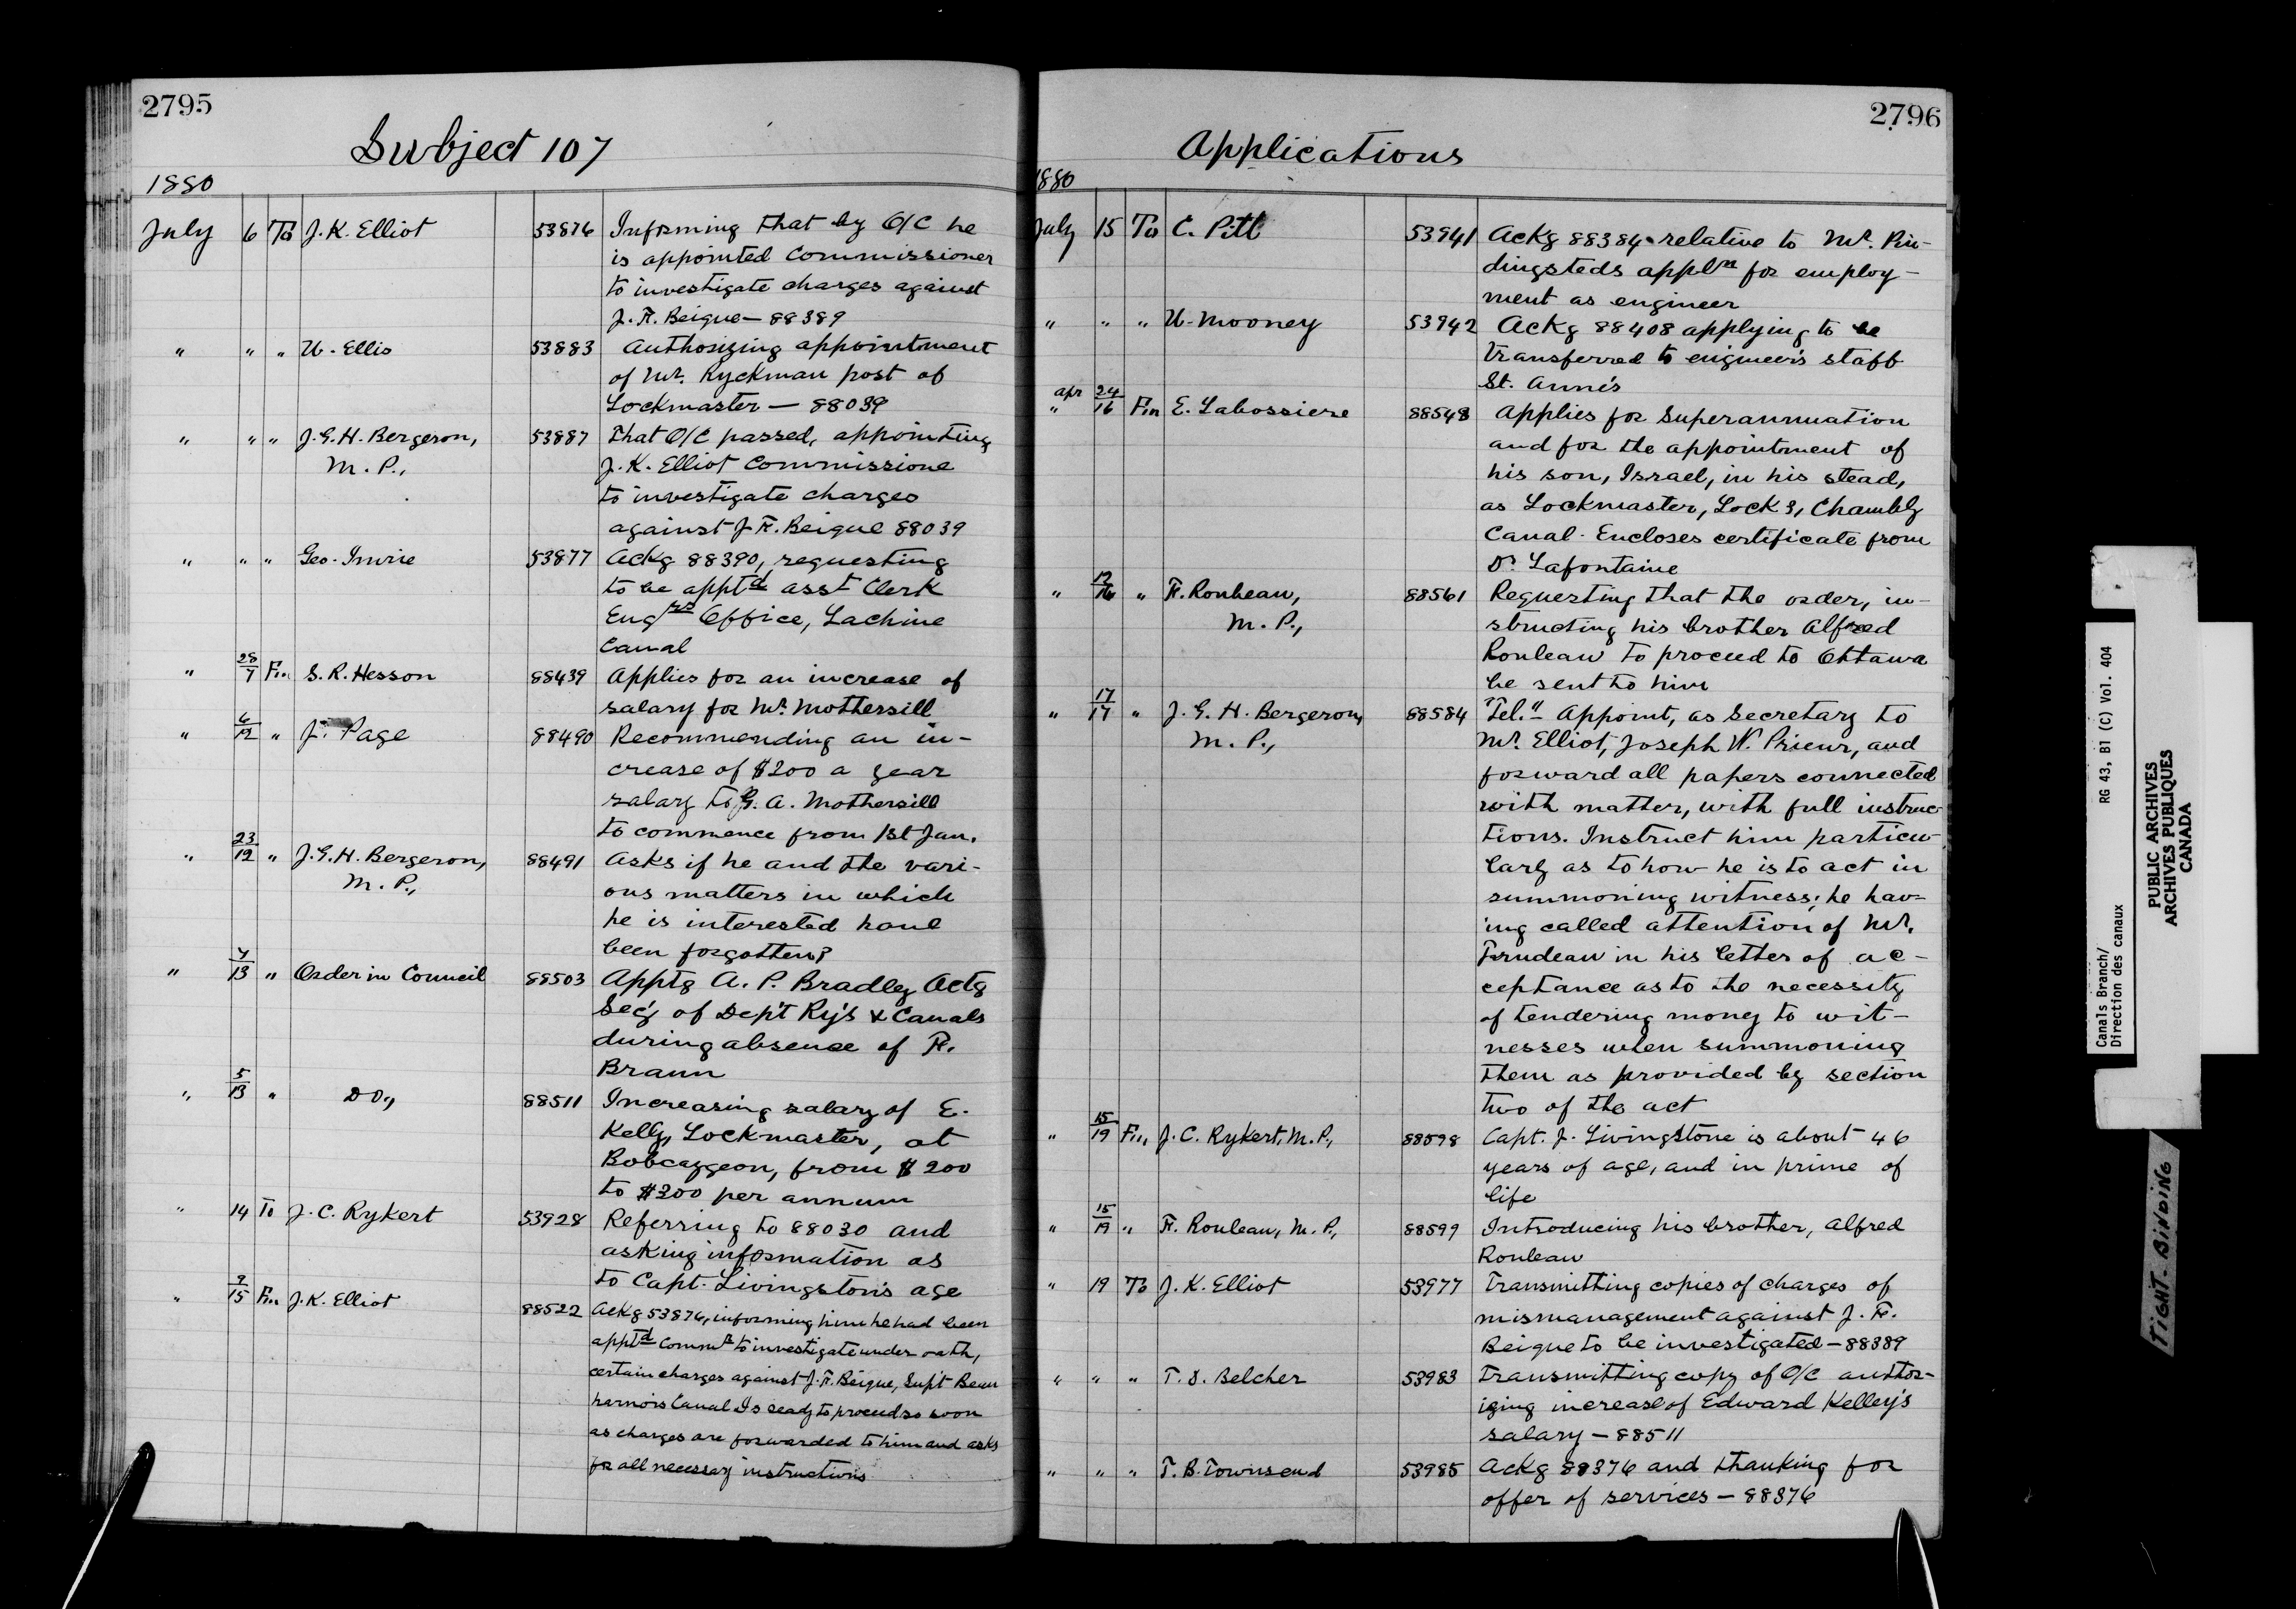 2795
Subject 107
1880
July 6 To J. K. Elliot 53876 Informing that by O/C he
is appointed Commissioner
to investigate charges against
J. F. Beique — 88389
" " " W. Ellis 53883 Authorizing appointment
of Mr. Ryckman post of
Lockmaster — 88039
" " " J. G. H. Bergeron, 53887 That O/C passed, appointing
M. P., J. K. Elliot Commissione
to investigate charges
against J. F. Beique 88039
" " " Geo. Imrie 53877 Ackg 88390, requesting
to be apptd asst Clerk
Engrs Office, Lachine
Canal
" 28/7 Fm S. R. Hesson 88439 Applies for an increase of
salary for Mr. Mothersill
" 6/12 " J. Page 88490 Recommending an in-
crease of $200 a year
salary to G. A. Mothersill
to commence from 1st Jan.
" 23/12 " J. G. H. Bergeron, 88491 Asks if he and the vari-
M. P., ous matters in which
he is interested have
been forgotten?
" 7/13 " Order in Council 88503 Apptg A. P. Bradley Actg
Sec'y of Dep't Ry's & Canals
during absence of F.
Braun
" 5/13 " Do., 88511 Increasing salary of E.
Kelly, Lockmaster, at
Bobcaygeon, from $200
to $300 per annum
" 14 To J. C. Rykert 53928 Referring to 88030 and
asking information as
to Capt. Livingston's age
" 9/15 Fm J. K. Elliot 88522 Ackg 53876, informing him he had been
apptd Commr to investigate under oath,
certain charges against J. F. Beique, Sup't Beau
harnois Canal Is ready to proceed so soon
as charges are forwarded to him and asks
for all necessary instructions
2796
Applications
1880
July 15 To C. Pitt 53941 Ackg 88384 relative to Mr. Pin-
dingsteds appln for employ-
ment as engineer
" " " W. Mooney 53942 Ackg 88408 applying to be
transferred to engineer's staff
St. Anne's
Apr 24
" 16 Fm E. Labossiere 88548 Applies for Superannuation
and for the appointment of
his son, Israel, in his stead,
as Lockmaster, Lock 3, Chambly
Canal. Encloses certificate from
Dr. Lafontaine
" 12/16 " F. Rouleau, 88561 Requesting that the order, in-
M. P., structing his brother Alfred
Rouleau to proceed to Ottawa
be sent to him
" 17/17 " J. G. H. Bergeron, 88584 "Tel." Appoint, as Secretary to
M. P., Mr. Elliot, Joseph W. Prieur, and
forward all papers connected
with matter, with full instruc-
tions. Instruct him particu-
larly as to how he is to act in
summoning witness; he hav-
ing called attention of Mr.
Trudeau in his letter of ac-
ceptance as to the necessity
of tendering money to wit-
nesses when summoning
them as provided by section
two of the act
" 15/19 Fm J. C. Rykert, M. P., 88598 Capt. J. Livingstone is about 46
years of age, and in prime of
life
" 15/19 " F. Rouleau, M. P., 88599 Introducing his brother, Alfred
Rouleau
" 19 To J. K. Elliot 53977 Transmitting copies of charges of
mismanagement against J. F.
Beique to be investigated — 88389
" " " T. D. Belcher 53983 Transmitting copy of O/C author-
izing increase of Edward Kelley's
salary — 88511
" " " T. B. Townsend 53985 Ackg 88376 and thanking for
offer of services — 88376
Canals Branch/ RG 43, B1 (C) Vol. 404
Direction des canaux
PUBLIC ARCHIVES
ARCHIVES PUBLIQUES
CANADA
TIGHT BINDING